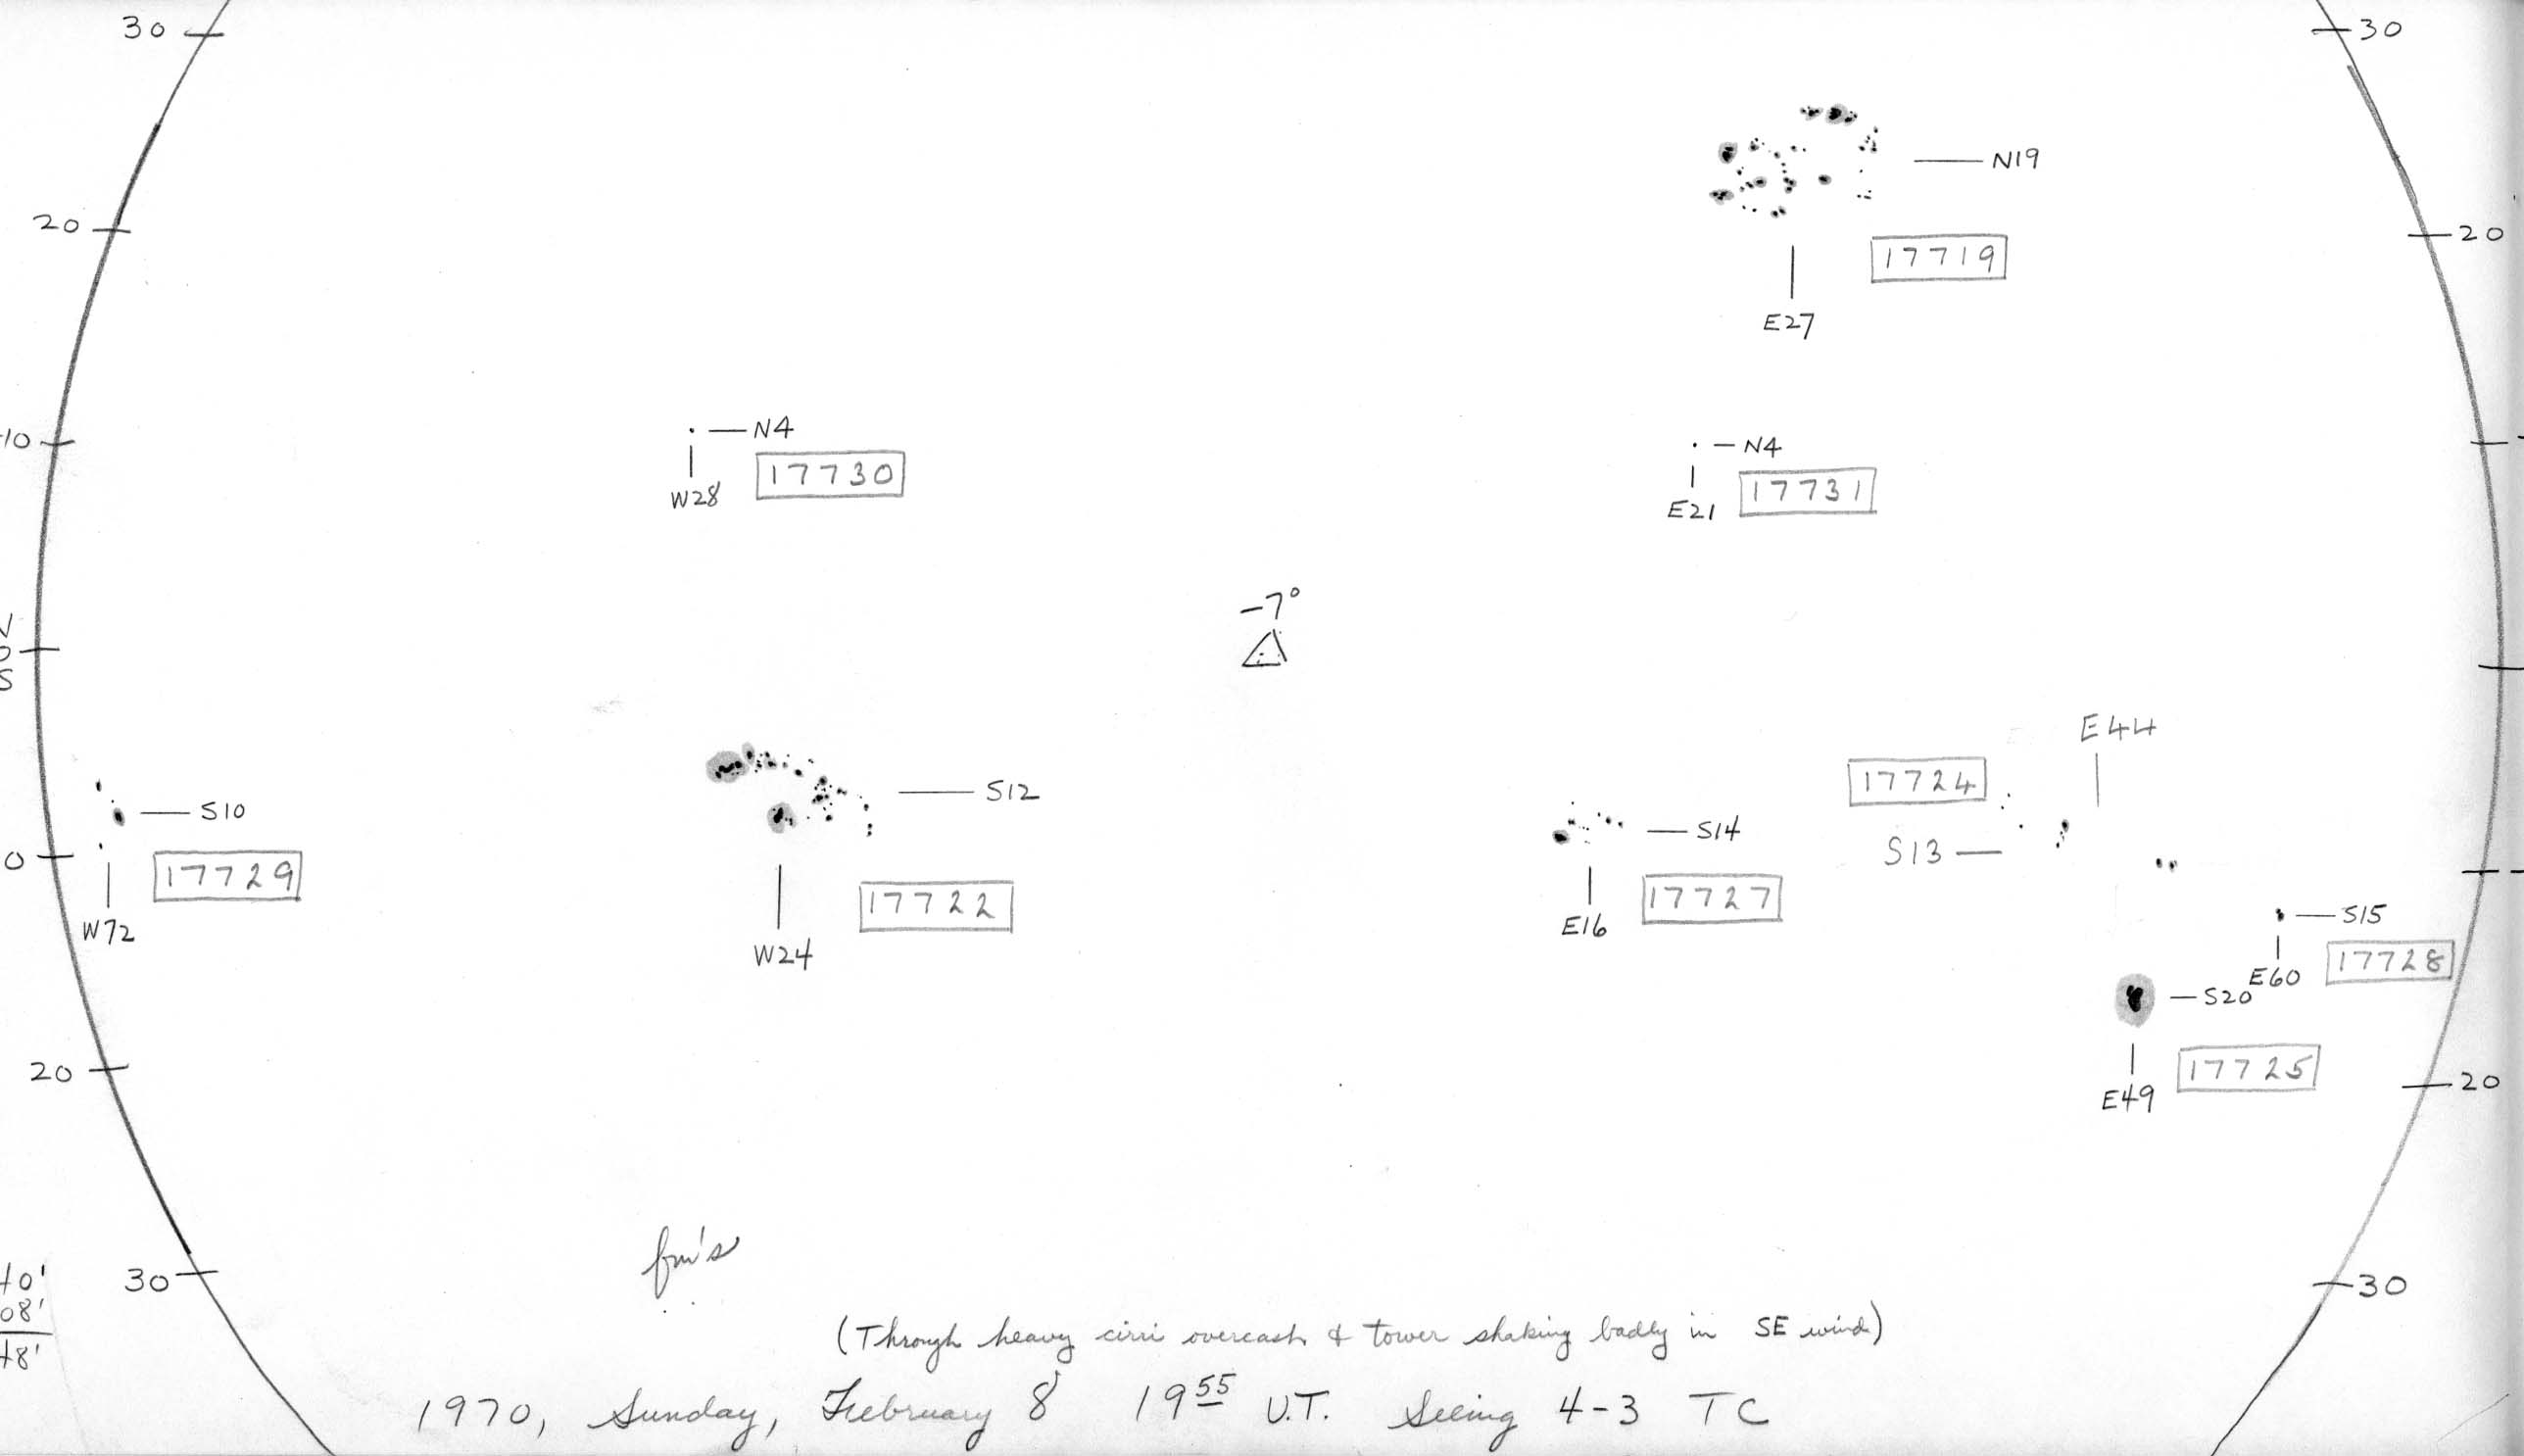 30
30
N19
20
20
17719
E27
10
N4
N4
17730
17731
W28
E21
-7°
0
S
E44
17724
S10
S12
S14
S13
0
17729
17722
17727
W72
W24
E16
S15
17728
E60
S20
17725
20
20
E49
fm's
40'
08'
48'
30
30
(Through heavy cirri overcast & tower shaking badly in SE wind)
1970, Sunday, February 8 19 55 U.T. Seeing 4-3 TC